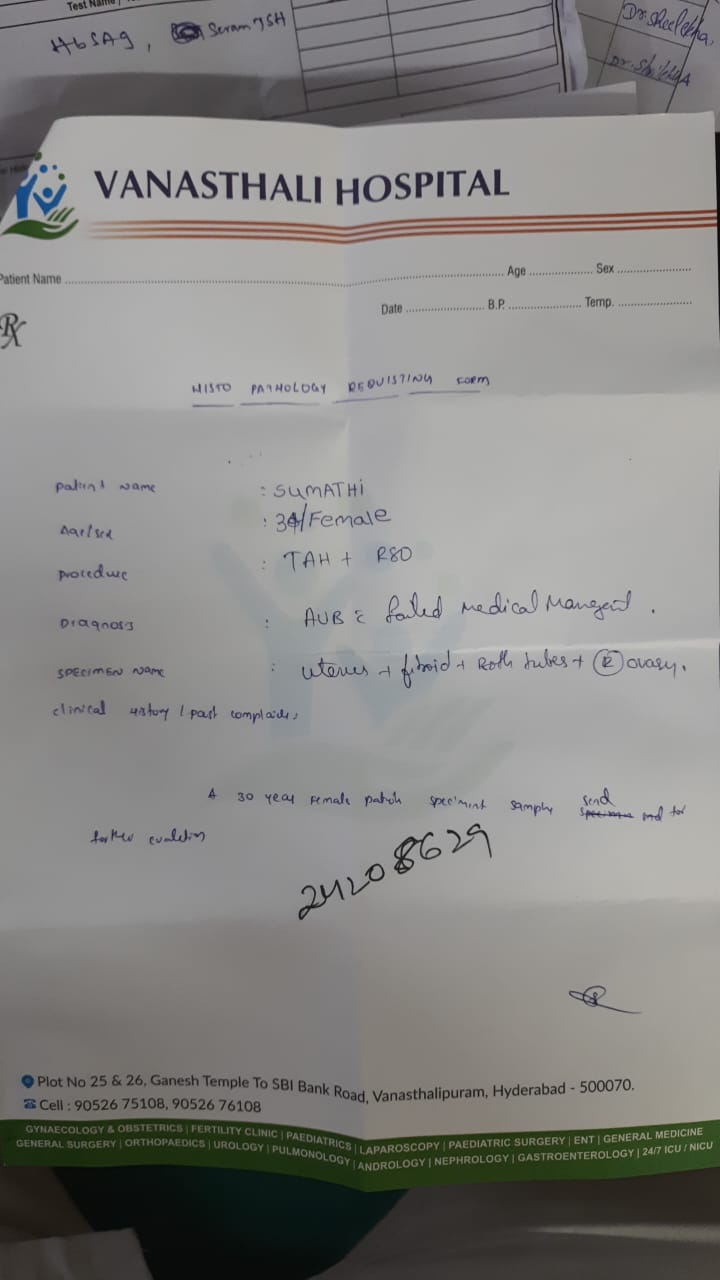 Test Name /
HbSAg, Serum TSH
Dr. Sheelekha
VANASTHALI HOSPITAL
Patient Name ........ Age ........ Sex ........
Date ........ B.P. ........ Temp. ........
Rx
HISTO PATHOLOGY REQUISTING FORM
patient name : SUMATHi
Age/sex : 34/Female
procedure : TAH + RSO
Diagnosis : AUB c failed medical Mangent.
SPECIMEN NAME : uterus + fibroid + Both tubes + (R) ovary.
clinical history / past complaints
A 30 year Female patient speciment sample send and for
further evaluation
24208629
Plot No 25 & 26, Ganesh Temple To SBI Bank Road, Vanasthalipuram, Hyderabad - 500070.
Cell : 90526 75108, 90526 76108
GYNAECOLOGY & OBSTETRICS | FERTILITY CLINIC | PAEDIATRICS | LAPAROSCOPY | PAEDIATRIC SURGERY | ENT | GENERAL MEDICINE
GENERAL SURGERY | ORTHOPAEDICS | UROLOGY | PULMONOLOGY | ANDROLOGY | NEPHROLOGY | GASTROENTEROLOGY | 24/7 ICU / NICU